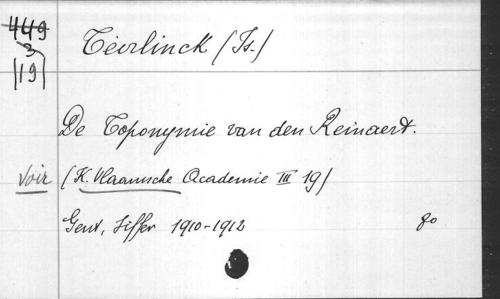 449
3
(19)
Teirlinck (Is.)
De Toponymie van den Reinaert.
voir (K. Vlaamsche Academie III 19)
Gent, Siffer 1910-1912 8o